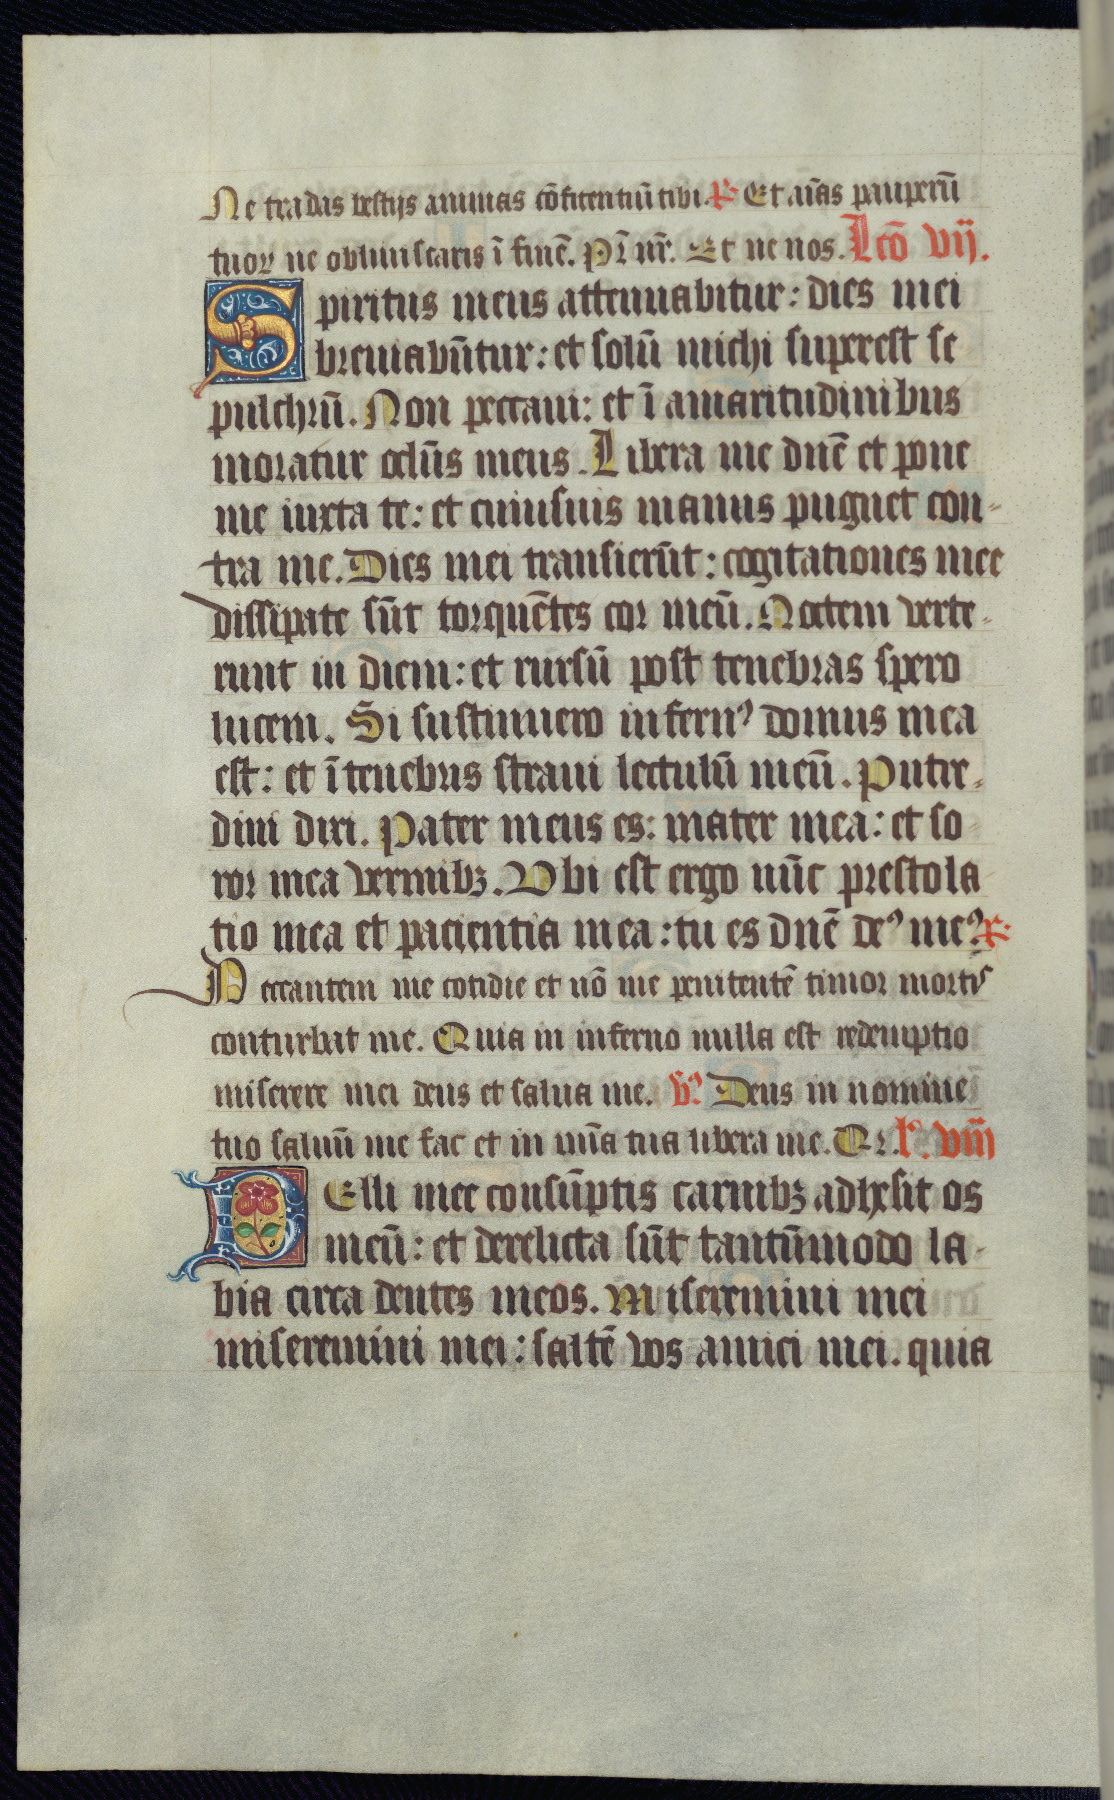 Ne tradas bestijs animas cōfitentiū tibi. R Et aīas pauperū
tuoꝝ ne obliuiscaris ī finē. Pr̄ nr̄. Et ne nos. Lcō vij.
Spiritus meus attenuabitur: dies mei
breuiabūtur: et solū michi superest se
pulchrū. Non peccaui: et ī amaritudinibus
moratur oclūs meus. Libera me dnē et pone
me iuxta te: et cuiusuis manus pugnet con-
tra me. Dies mei transierūt: cogitationes mee
dissipate sūt torquētes cor meū. Noctem verte-
runt in diem: et rursū post tenebras spero
lucem. Si sustinuero infernꝰ domus mea
est: et ī tenebris straui lectulū meū. Putre-
dini dixi. Pater meus es: mater mea: et so
ror mea vermibꝫ. Vbi est ergo nūc prestola
tio mea et paciencia mea: tu es dnē deꝰ meꝰ. R.
Peccantem me cotidie et nō me penitentē timor mortis
conturbat me. Quia in inferno nulla est redemptio
miserere mei deus et salua me. V. Deus in nomine
tuo saluū me fac et in uīta tua libera me. Q̄. L. viij
Pelli mee consūptis carnibꝫ adhesit os
meū: et derelicta sūt tantūmodo la-
bia circa dentes meos. Miseremini mei
miseremini mei: saltē vos amici mei. quia